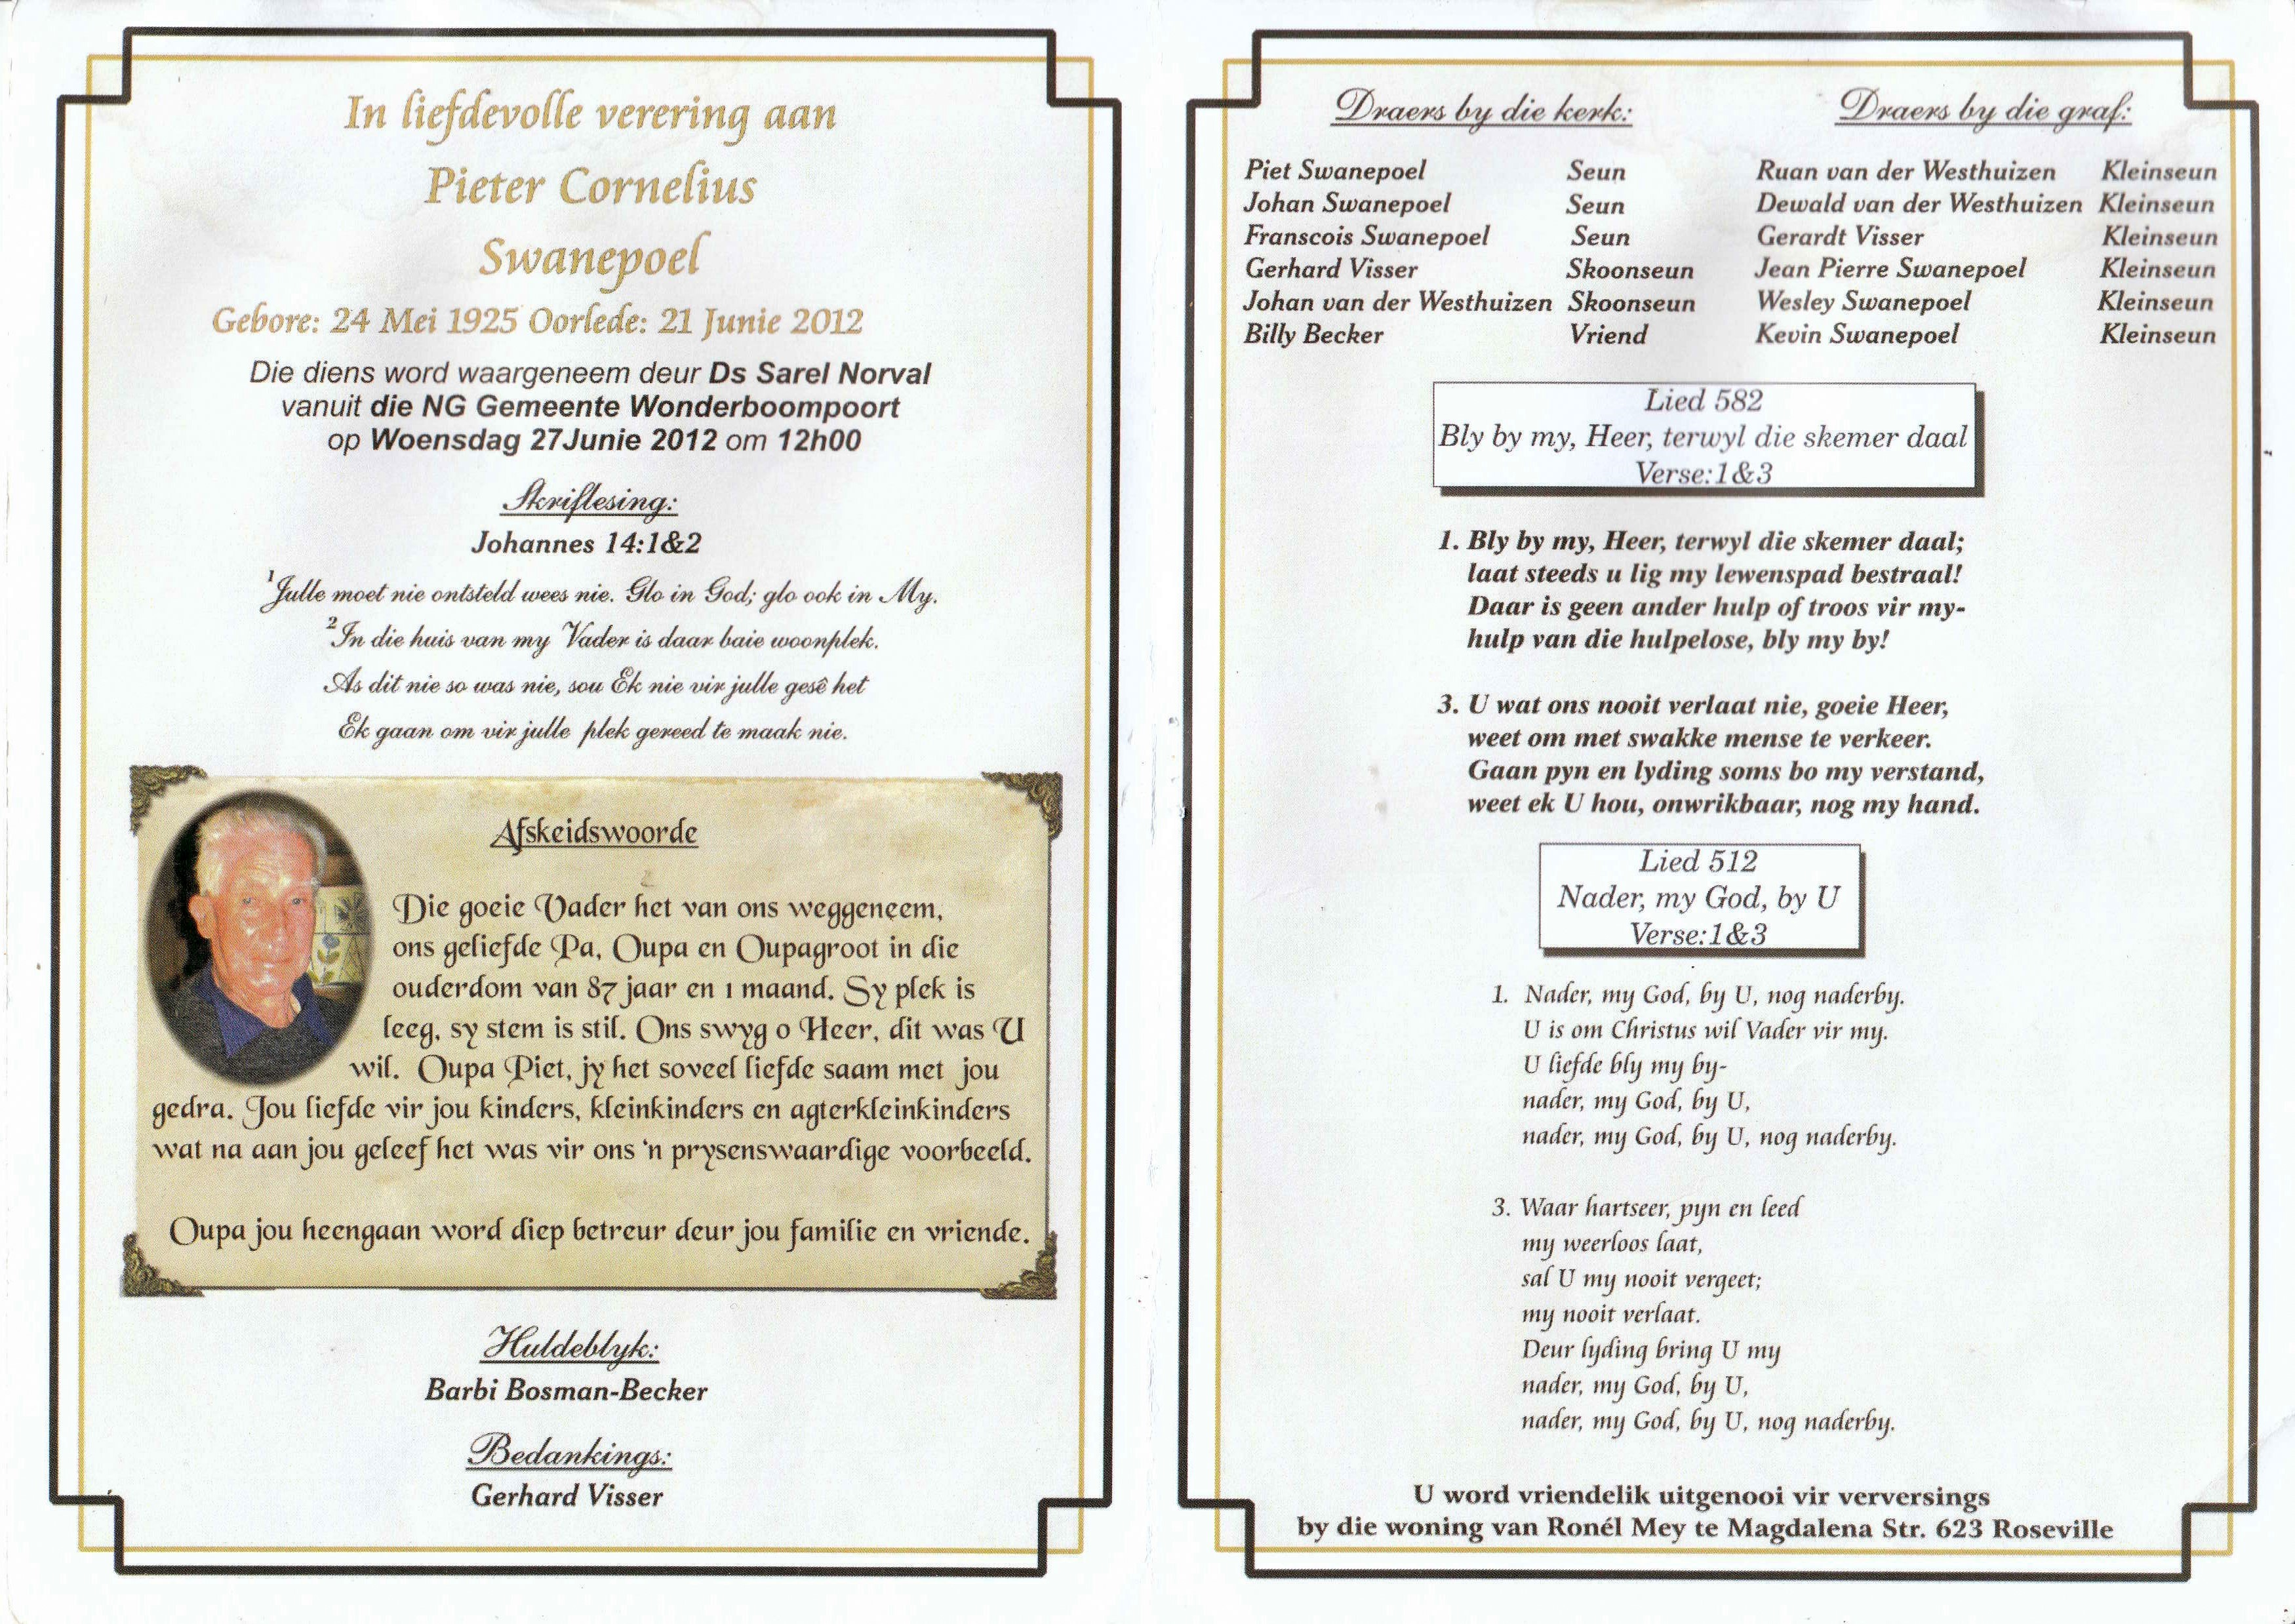 In liefdevolle verering aan
Pieter Cornelius
Swanepoel
Gebore: 24 Mei 1925 Oorlede: 21 Junie 2012
Die diens word waargeneem deur Ds Sarel Norval
vanuit die NG Gemeente Wonderboompoort
op Woensdag 27Junie 2012 om 12h00
Skriflesing:
Johannes 14:1&2
¹Julle moet nie ontsteld wees nie. Glo in God; glo ook in My.
²In die huis van my Vader is daar baie woonplek.
As dit nie so was nie, sou Ek nie vir julle gesê het
Ek gaan om vir julle plek gereed te maak nie.
Afskeidswoorde
Die goeie Vader het van ons weggeneem,
ons geliefde Pa, Oupa en Oupagroot in die
ouderdom van 87 jaar en 1 maand. Sy plek is
leeg, sy stem is stil. Ons swyg o Heer, dit was U
wil. Oupa Piet, jy het soveel liefde saam met jou
gedra. Jou liefde vir jou kinders, kleinkinders en agterkleinkinders
wat na aan jou geleef het was vir ons 'n prysenswaardige voorbeeld.
Oupa jou heengaan word diep betreur deur jou familie en vriende.
Huldeblyk:
Barbi Bosman-Becker
Bedankings:
Gerhard Visser
Draers by die kerk:
Piet Swanepoel Seun
Johan Swanepoel Seun
Franscois Swanepoel Seun
Gerhard Visser Skoonseun
Johan van der Westhuizen Skoonseun
Billy Becker Vriend
Draers by die graf:
Ruan van der Westhuizen Kleinseun
Dewald van der Westhuizen Kleinseun
Gerardt Visser Kleinseun
Jean Pierre Swanepoel Kleinseun
Wesley Swanepoel Kleinseun
Kevin Swanepoel Kleinseun
Lied 582
Bly by my, Heer, terwyl die skemer daal
Verse:1&3
1. Bly by my, Heer, terwyl die skemer daal;
laat steeds u lig my lewenspad bestraal!
Daar is geen ander hulp of troos vir my-
hulp van die hulpelose, bly my by!
3. U wat ons nooit verlaat nie, goeie Heer,
weet om met swakke mense te verkeer.
Gaan pyn en lyding soms bo my verstand,
weet ek U hou, onwrikbaar, nog my hand.
Lied 512
Nader, my God, by U
Verse:1&3
1. Nader, my God, by U, nog naderby.
U is om Christus wil Vader vir my.
U liefde bly my by-
nader, my God, by U,
nader, my God, by U, nog naderby.
3. Waar hartseer, pyn en leed
my weerloos laat,
sal U my nooit vergeet;
my nooit verlaat.
Deur lyding bring U my
nader, my God, by U,
nader, my God, by U, nog naderby.
U word vriendelik uitgenooi vir verversings
by die woning van Ronél Mey te Magdalena Str. 623 Roseville